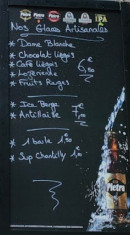 Pietra
IPA
Nos Glaces Artisanales
* Dame Blanche
* Chocolat Liégeois
* Café Liégeois 6,50
* Fruits Rouges
* Ice Berge
* Antillaise 7,00
* 1 boule 1,50
* Sup Chantilly 1,00
Pietra